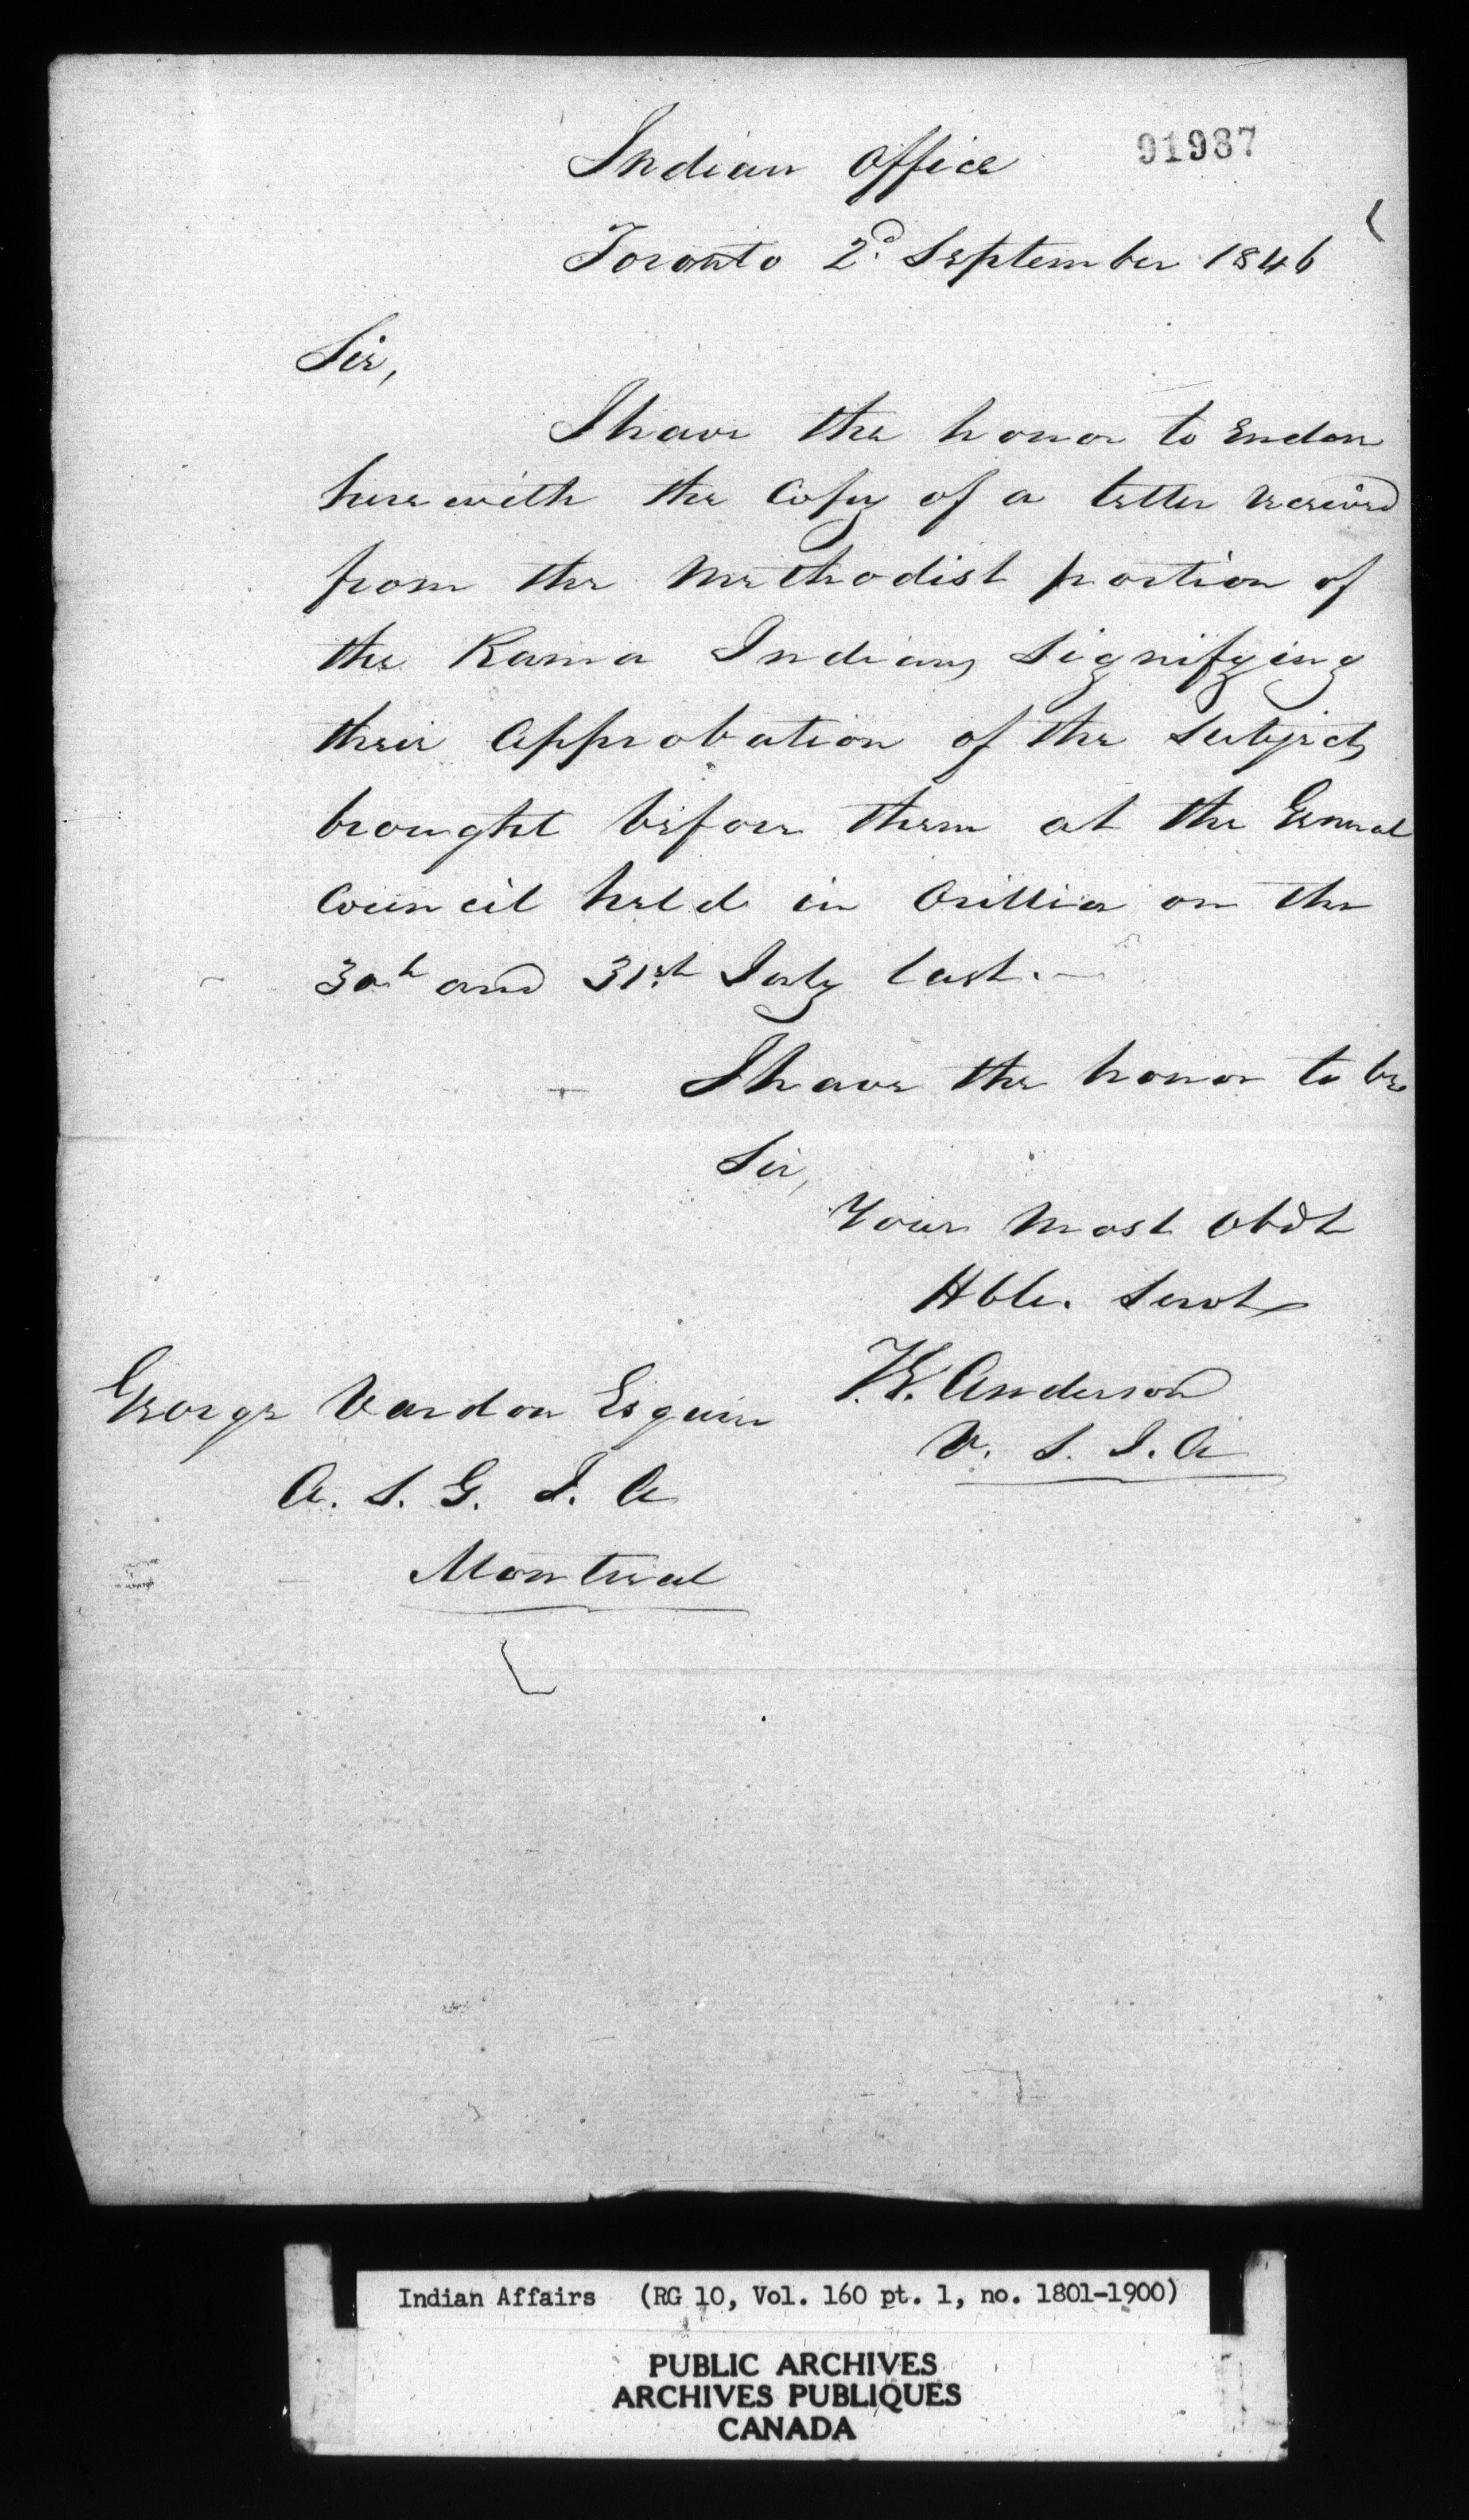 91987
Indian Office
Toronto 2d. September 1846
Sir,
I have the honor to Enclose
herewith the Copy of a letter received
from the Methodist portion of
the Rama Indians signifying
their Approbation of the Subjects
brought before them at the General
Council held in Orillia on the
30th and 31st. July last.—
I have the honor to be
Sir,
Your most Obdt
Hble. Servt
Anderson
V. S. I. A
George Vardon Esquire
A. S. G. I. A
Montreal
Indian Affairs (RG 10, Vol. 160 pt. 1, no. 1801-1900)
PUBLIC ARCHIVES
ARCHIVES PUBLIQUES
CANADA